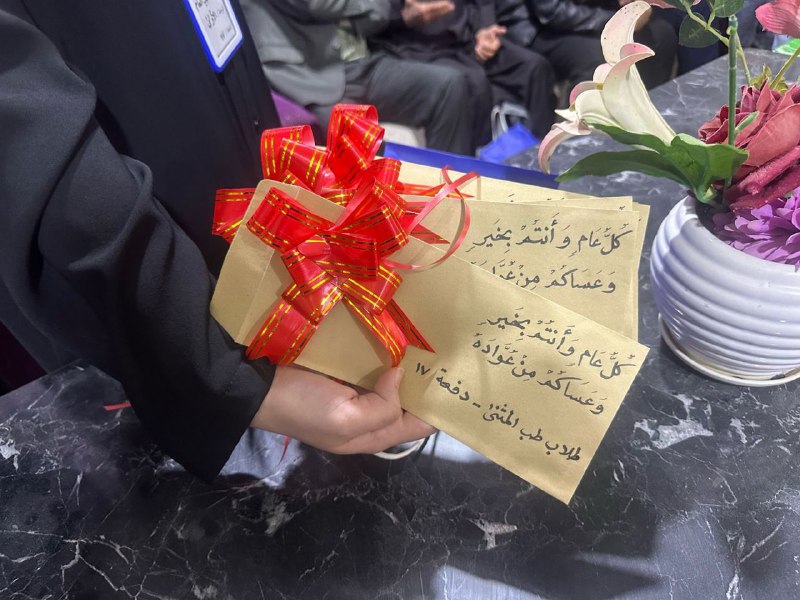 كُلُّ عَام وَ أَنْتُمْ بِخَيْر
وَعَسَاكُمْ مِنْ
كُلُّ عَام وَأَنْتُمْ بِخَيْر
وَعَسَاكُمْ مِنْ عُوَّادَهُ
طلاب طب المثنى - دفعة ١٧